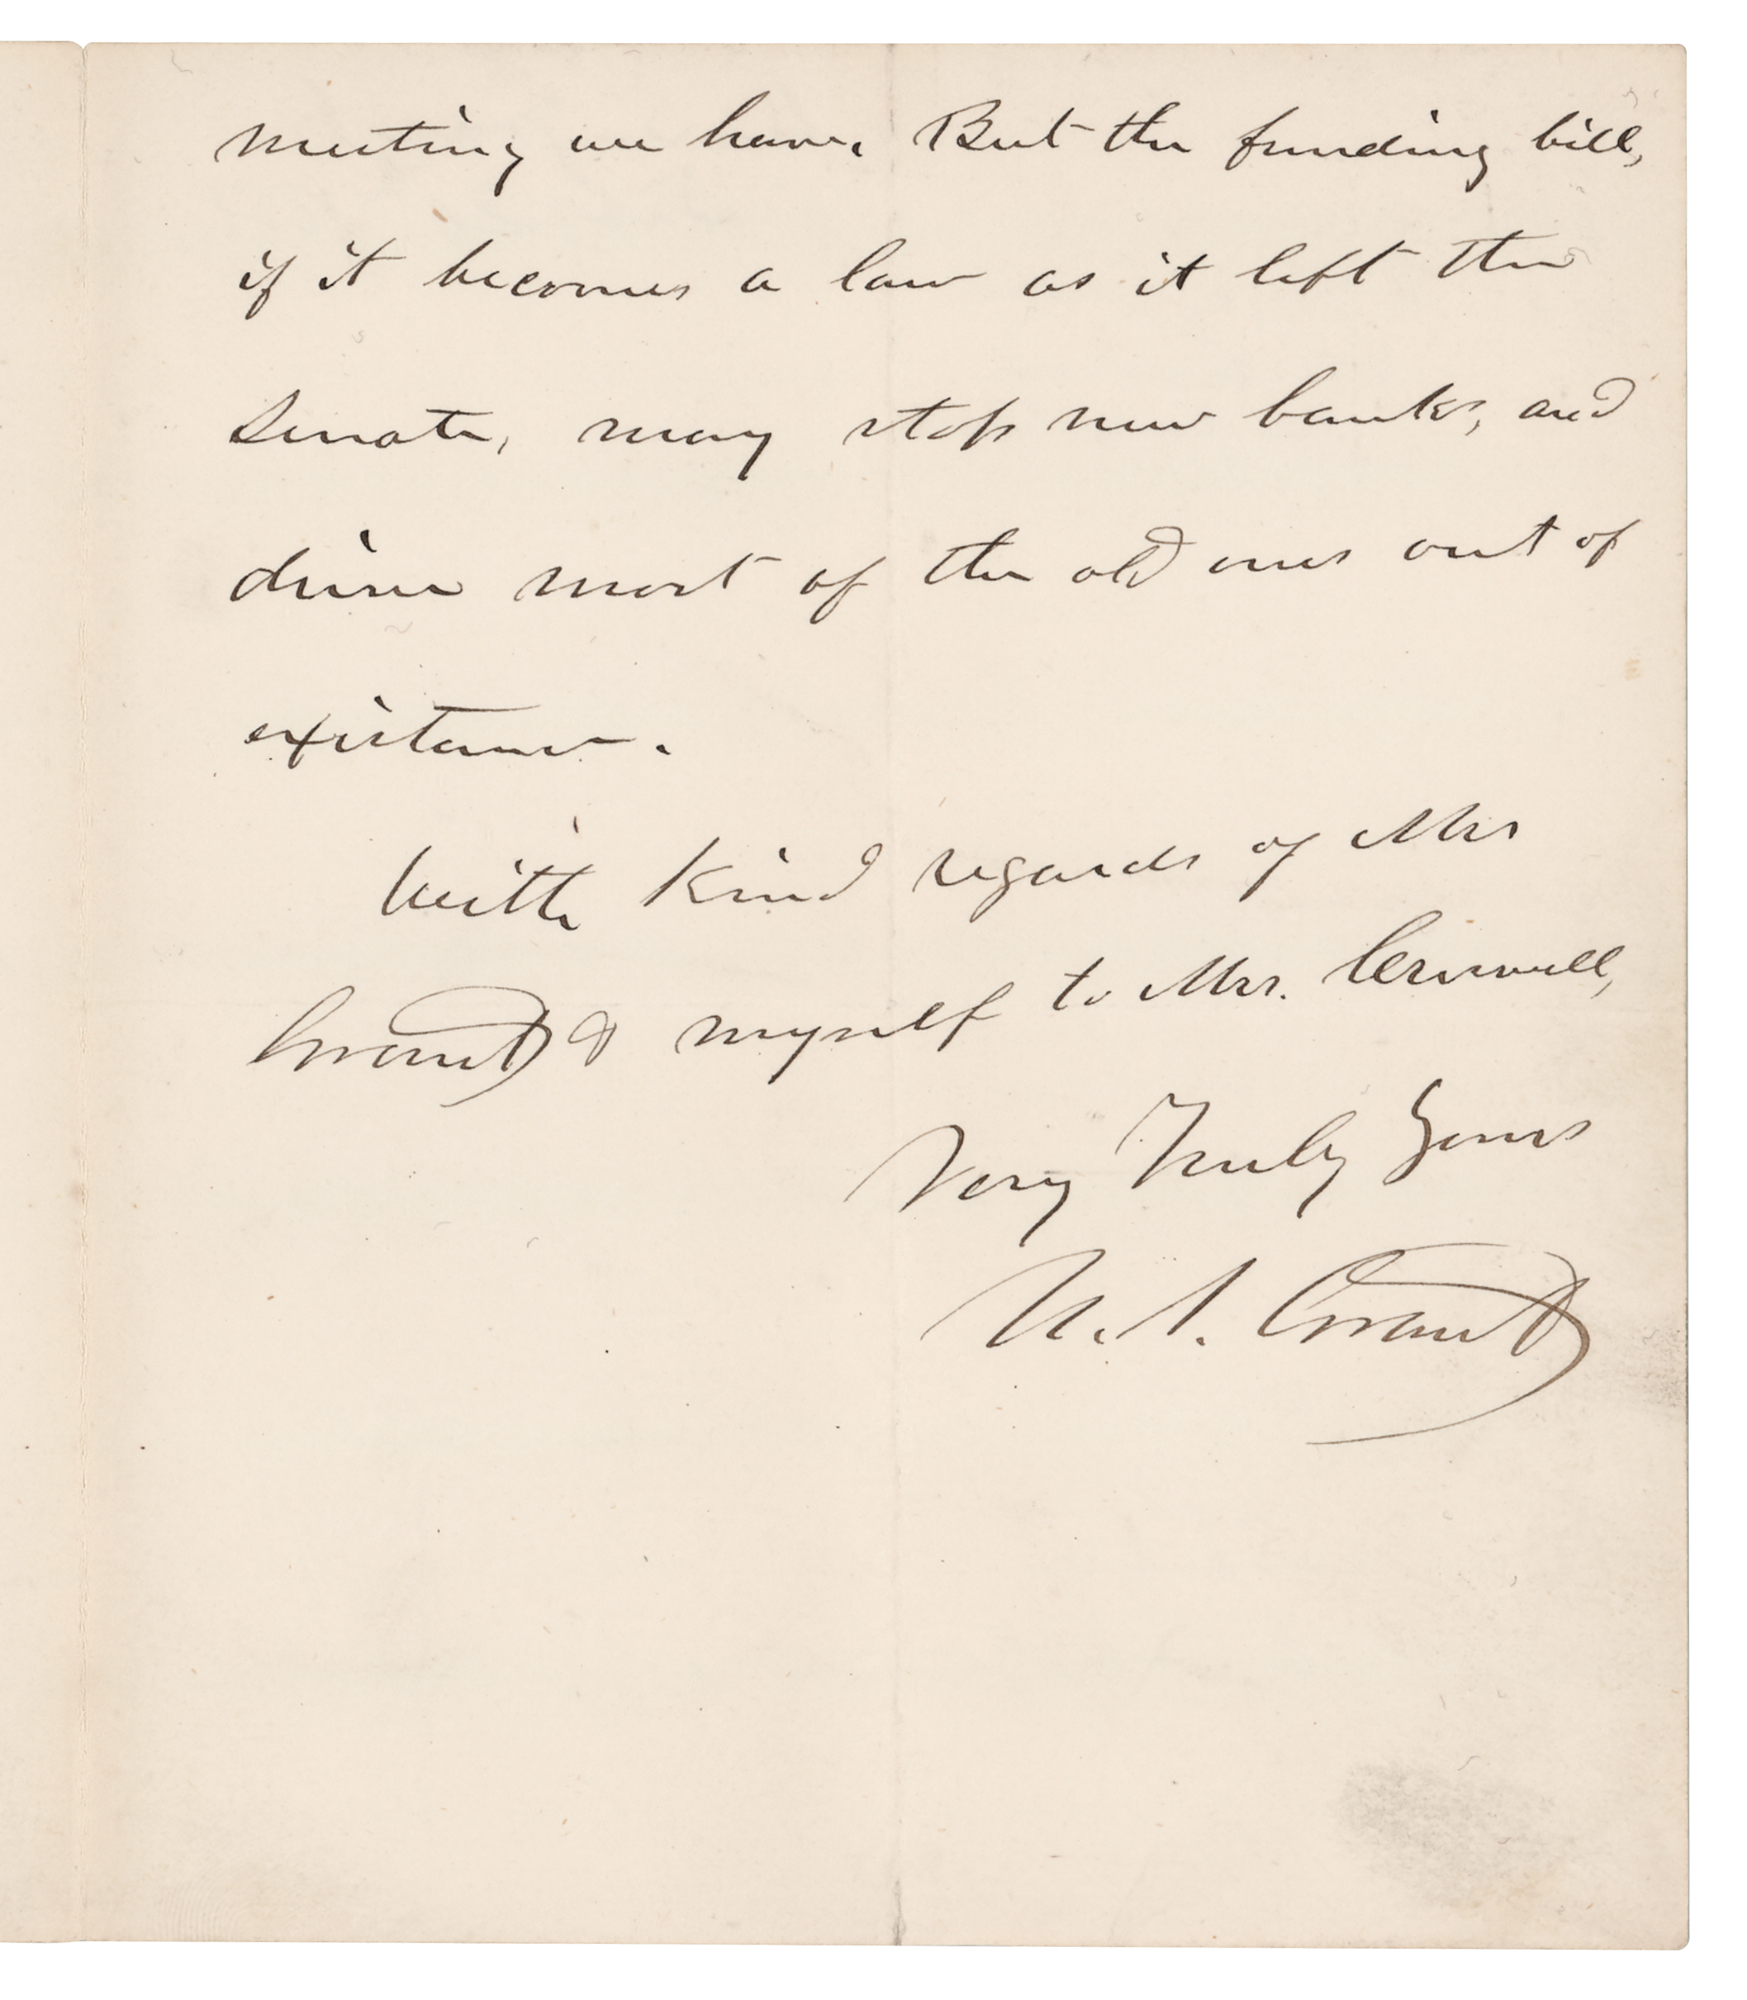 meeting we have. But the funding bill,
if it becomes a law as it left the
Senate, may stop new banks, and
drive most of the old ones out of
existance.
With kind regards of Mrs
Grant & myself to Mrs.
Very Truly Yours
U. S. Grant